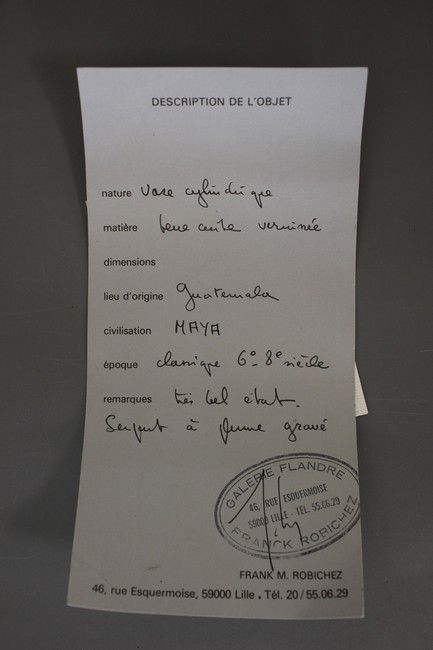 DESCRIPTION DE L'OBJET
nature Vase cylindrique
matière terre cuite vernissée
dimensions
lieu d'origine Guatemala
civilisation MAYA
époque classique 6°-8° siècle
remarques très bel état.
Serpent à plume gravé
GALERIE FLANDRE
46, RUE ESQUERMOISE
59000 LILLE - TEL. 55.06.29
FRANCK ROBICHEZ
FRANK M. ROBICHEZ
46, rue Esquermoise, 59000 Lille. Tél. 20/55.06.29